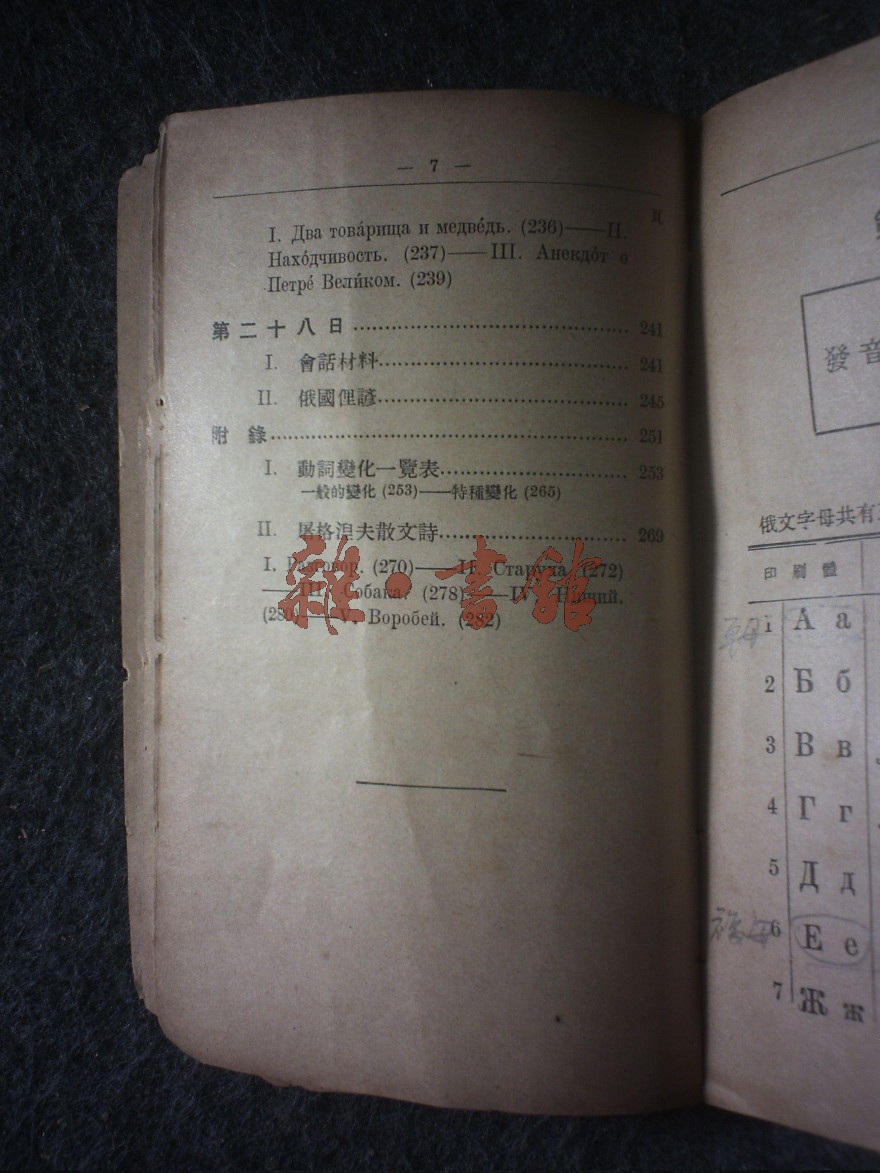 — 7 —
頁
I. Два това́рища и медве́дь. (236)——II.
Нахо́дчивость. (237)——III. Анекдо́т о
Петре́ Вели́ком. (239)
第二十八日 241
I. 會話材料 241
II. 俄國俚諺 245
附錄 251
I. 動詞變化一覽表 253
一般的變化 (253)——特種變化 (265)
II. 屠格涅夫散文詩 269
I. Разговор. (270)——II. Старуха (272)
——III. Собака. (278)——IV. Нищий.
(280)——V. Воробей. (282)
雜·書館
發音
俄文字母共有
印刷體
1 А а
2 Б б
3 В в
4 Г г
5 Д д
6 Е е
7 Ж ж